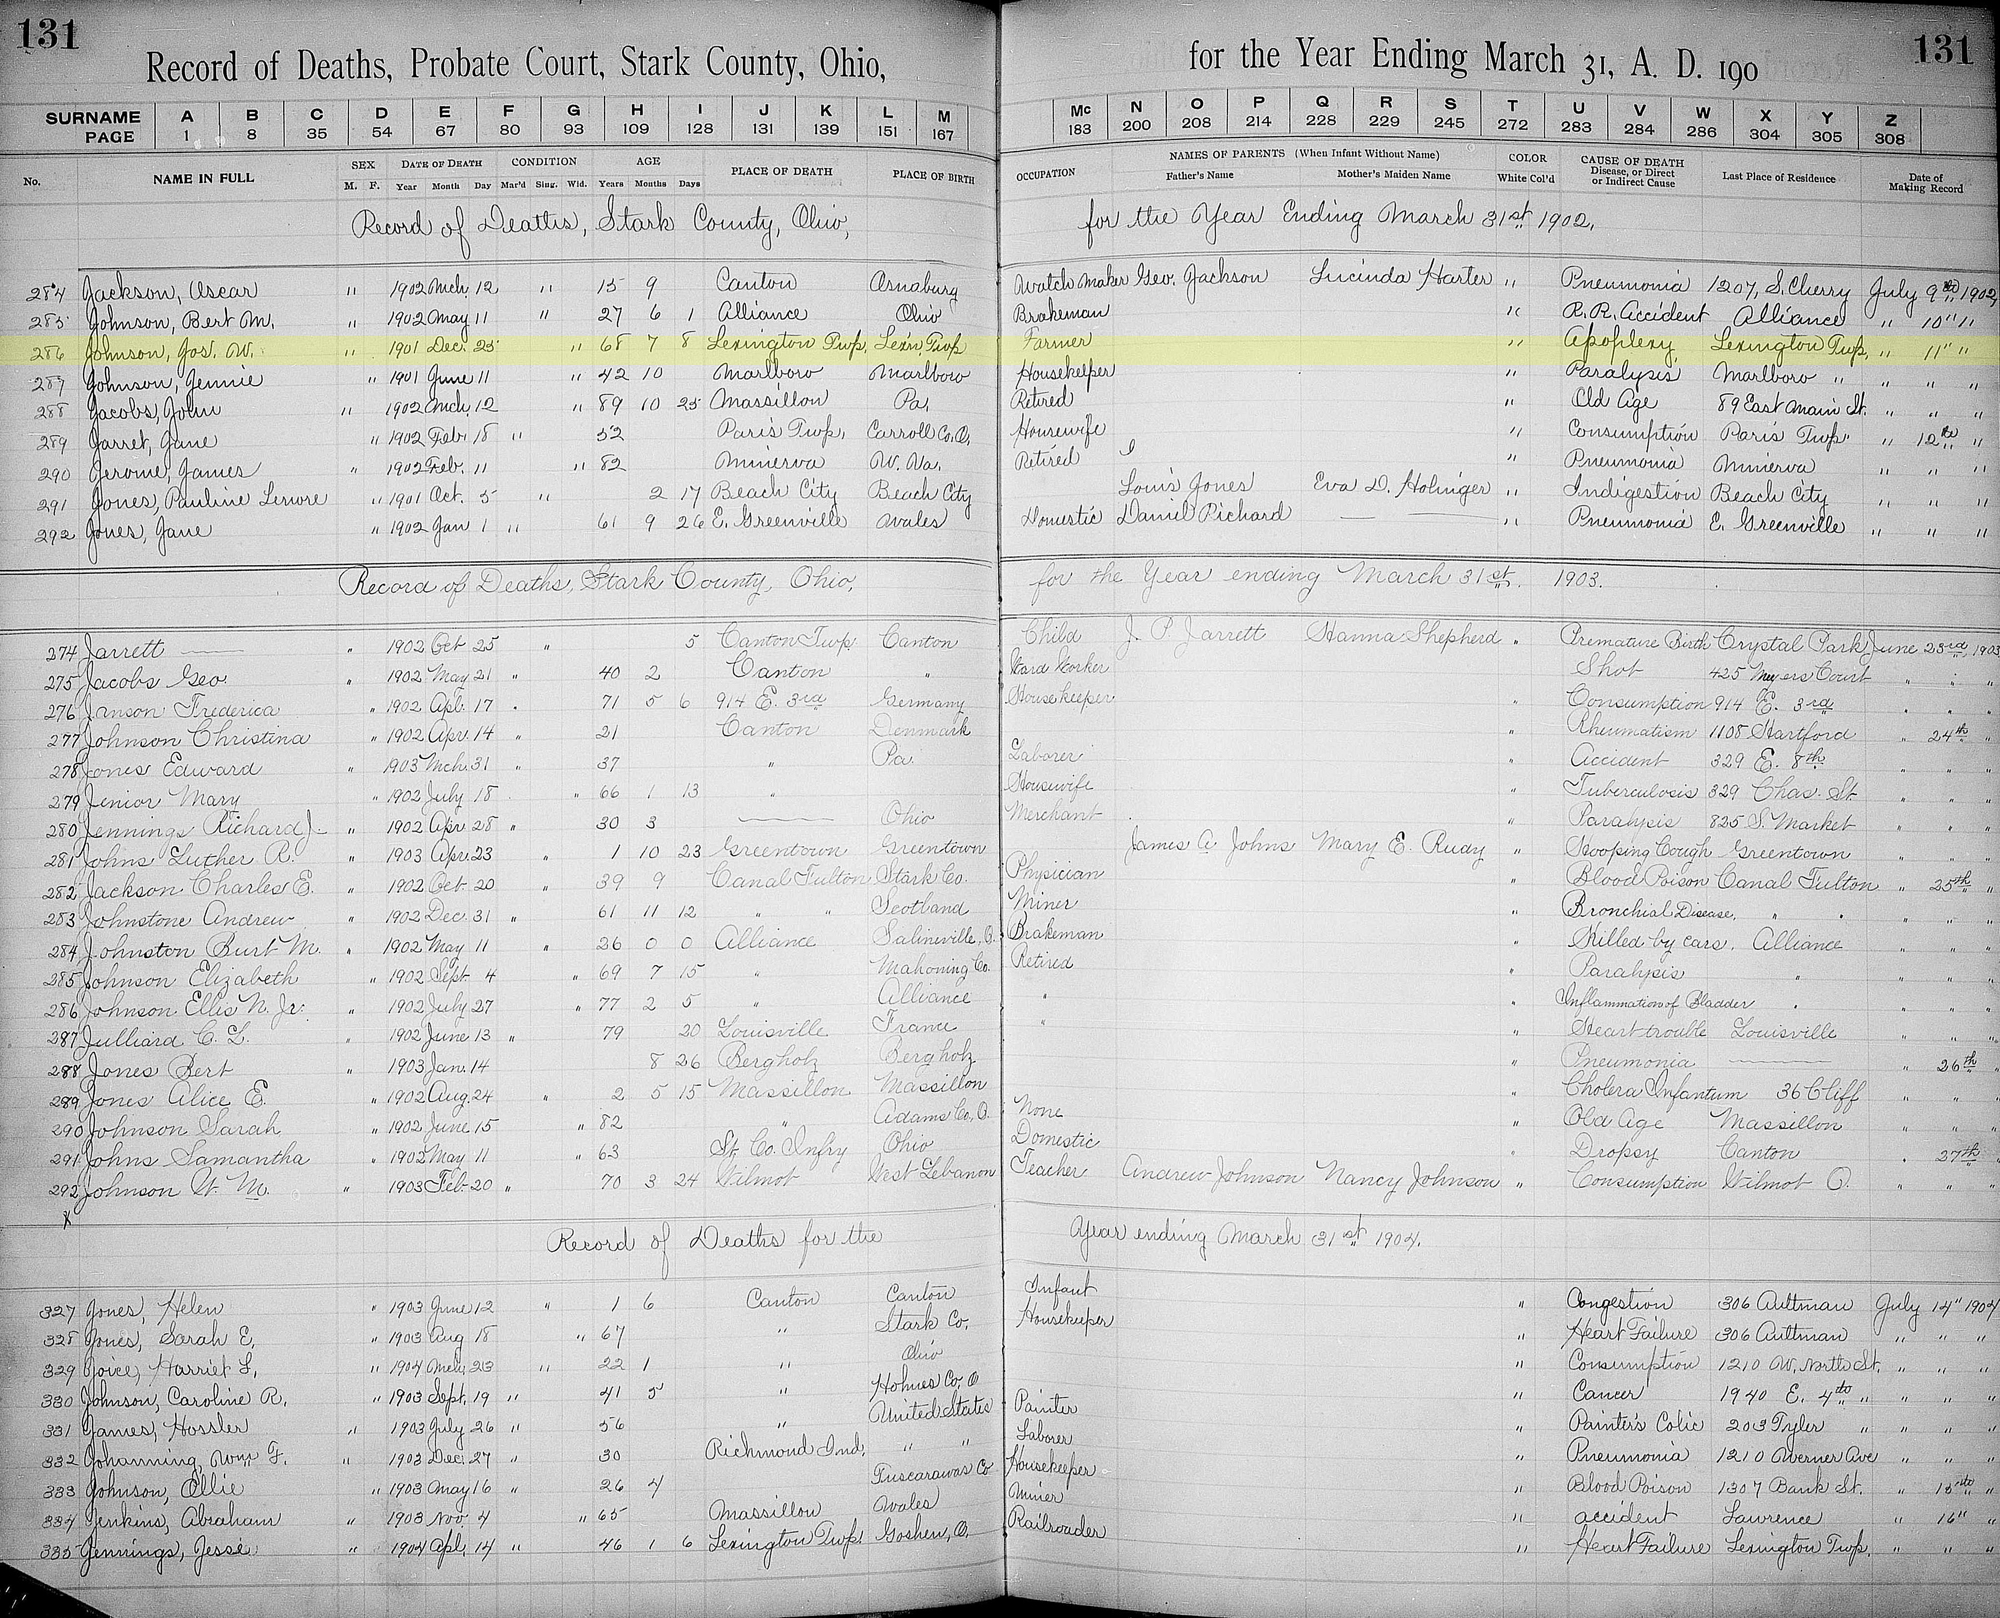 131 131
Record of Deaths, Probate Court, Stark County, Ohio, for the Year Ending March 31, A. D. 190
SURNAME A B C D E F G H I J K L M Mc N O P Q R S T U V W X Y Z
PAGE 1 8 35 54 67 80 93 109 128 131 139 151 167 183 200 208 214 228 229 245 272 283 284 286 304 305 308
No. NAME IN FULL SEX M. F. DATE OF DEATH Year Month Day CONDITION Mar'd Sing. Wid. AGE Years Months Days PLACE OF DEATH PLACE OF BIRTH OCCUPATION NAMES OF PARENTS (When Infant Without Name) Father's Name Mother's Maiden Name COLOR White Col'd CAUSE OF DEATH Disease, or Direct or Indirect Cause Last Place of Residence Date of Making Record
Record of Deaths, Stark County, Ohio, for the Year Ending March 31st 1902,
284 Jackson, Oscar " 1902 Mch. 12 " 15 9 Canton Osnaburg Watch Maker Geo. Jackson Lucinda Harter " Pneumonia 1207, S. Cherry July 9th 1902,
285 Johnson, Bert M. " 1902 May 11 " 27 6 1 Alliance Ohio Brakeman " R. R. Accident Alliance " 10" "
286 Johnson, Jos. W. " 1901 Dec. 25 " 68 7 8 Lexington Twp. Lexn. Twp Farmer " Apoplexy, Lexington Twp. " 11" "
287 Johnson, Jennie " 1901 June 11 " 42 10 Marlboro Marlboro Housekeeper " Paralysis Marlboro " " " "
288 Jacobs, John " 1902 Mch. 12 " 89 10 25 Massillon Pa. Retired " Old Age 89 East Main St. " " "
289 Jarret, Jane " 1902 Feb. 18 " 52 Paris Twp. Carroll Co. O. Housewife " Consumption Paris Twp. " 12th "
290 Jerome, James " 1902 Feb. 11 " 82 Minerva W. Va. Retired " Pneumonia Minerva " " "
291 Jones, Pauline Lenore " 1901 Oct. 5 " 2 17 Beach City Beach City Louis Jones Eva D. Holinger " Indigestion Beach City " " "
292 Jones, Jane " 1902 Jan 1 " 61 9 26 E. Greenville Wales Domestic Daniel Richard — — " Pneumonia E. Greenville " " "
Record of Deaths, Stark County, Ohio, for the Year ending March 31st. 1903.
274 Jarrett — " 1902 Oct 25 " 5 Canton Twp. Canton Child J. P. Jarrett Hanna Shepherd " Premature Birth Crystal Park June 23rd 1903
275 Jacobs Geo. " 1902 May 21 " 40 2 Canton " Shot 425 Myers Court " " "
276 Janson Frederica " 1902 Apl. 17 " 71 5 6 914 E. 3rd Germany Housekeeper " Consumption 914 E. 3rd " " "
277 Johnson Christina " 1902 Apr. 14 " 21 Canton Denmark " Rheumatism 1108 Hartford " 24th "
278 Jones Edward " 1903 Mch. 31 " 37 " Pa. Laborer " Accident 329 E. 8th " " "
279 Jenior Mary " 1902 July 18 " 66 1 13 " Housewife " Tuberculosis 329 Chas. St. " " "
280 Jennings Richard J. " 1902 Apr. 28 " 30 3 — Ohio Merchant " Paralysis 825 S. Market " " "
281 Johns Luther R. " 1903 Apr. 23 " 1 10 23 Greentown Greentown James A. Johns Mary E. Ruay " Hooping Cough Greentown " " "
282 Jackson Charles E. " 1902 Oct. 20 " 39 9 Canal Fulton Stark Co. Physician " Blood Poison Canal Fulton " 25th "
283 Johnstone Andrew " 1902 Dec. 31 " 61 11 12 " " Scotland Miner " Bronchial Disease. " " " " "
284 Johnston Burt M. " 1902 May 11 " 26 0 0 Alliance Salineville, O. Brakeman " Killed by cars. Alliance " " "
285 Johnson Elizabeth " 1902 Sept. 4 " 69 7 15 " Mahoning Co. Retired " Paralysis " " " "
286 Johnson Ellis N. Jr. " 1902 July 27 " 77 2 5 " Alliance " " Inflammation of Bladder " " " "
287 Julliard C. L. " 1902 June 13 " 79 20 Louisville France " " Heart trouble Louisville " " "
288 Jones Bert " 1903 Jan. 14 8 26 Bergholz Bergholz " Pneumonia — " 26th "
289 Jones Alice E. " 1902 Aug. 24 " 2 5 15 Massillon Massillon " Cholera Infantum 36 Cliff " " "
290 Johnson Sarah " 1902 June 15 " 82 " Adams Co. O. None " Old Age Massillon " " "
291 Johns Samantha " 1902 May 11 " 63 St. Co. Infry Ohio Domestic " Dropsy Canton " 27th "
292 Johnson W. M. " 1903 Feb. 20 " 70 3 24 Wilmot West Lebanon Teacher Andrew Johnson Nancy Johnson " Consumption Wilmot O. " " "
x
Record of Deaths for the Year ending March 31st 1904.
327 Jones, Helen " 1903 June 12 " 1 6 Canton Canton Infant " Congestion 306 Aultman July 14" 1904
328 Jones, Sarah E. " 1903 Aug 18 " 67 " Stark Co. Housekeeper " Heart Failure 306 Aultman " " "
329 Joice, Harriet L. " 1904 Mch. 23 " 22 1 " Ohio " Consumption 1210 W. North St. " " "
330 Johnson, Caroline R. " 1903 Sept. 19 " 41 5 " Holmes Co. O " Cancer 1940 E. 4th " " " "
331 James, Hossler " 1903 July 26 " 56 " United States Painter " Painter's Colic 203 Tyler " " " "
332 Johanning, Wm. F. " 1903 Dec. 27 " 30 Richmond Ind. " " Laborer " Pneumonia 1210 Werner Ave " " "
333 Johnson, Ollie " 1903 May 16 " 26 4 Tuscarawas Co Housekeeper " Blood Poison 1307 Bank St. " 15th "
334 Jenkins, Abraham " 1903 Nov. 4 " 65 Massillon Wales Miner " accident Lawrence " 16" "
335 Jennings, Jesse " 1904 Apl. 14 " 46 1 6 Lexington Twp. Goshen, O. Railroader " Heart Failure Lexington Twp. " " "